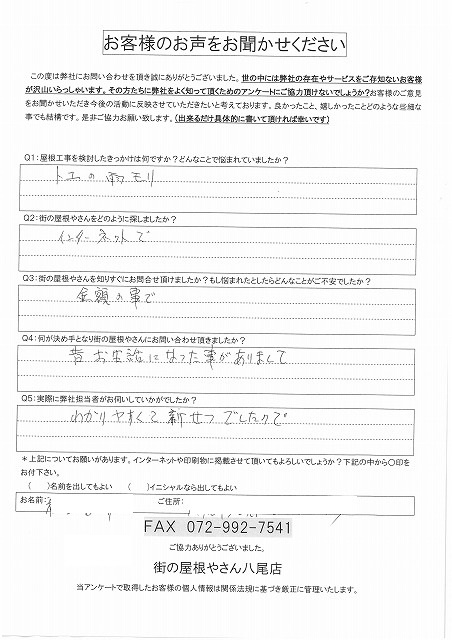 お客様のお声をお聞かせください
この度は弊社にお問い合わせを頂き誠にありがとうございました。世の中には弊社の存在やサービスをご存知ないお客様
が沢山いらっしゃいます。その方たちに弊社をよく知って頂くためのアンケートにご協力頂けないでしょうか?お客様のご意見
をお聞かせいただき今後の活動に反映させていただきたいと考えております。良かったこと、嬉しかったことどのような些細な
事でも結構です。是非ご協力お願い致します。(出来るだけ具体的に書いて頂ければ幸いです)
Q1:屋根工事を検討したきっかけは何ですか?どんなことで悩まれていましたか?
の雨モリ
Q2:街の屋根やさんをどのように探しましたか?
インターネットで
Q3:街の屋根やさんを知りすぐにお問合せ頂けましたか?もし悩まれたとしたらどんなことがご不安でしたか?
金額の事で
Q4:何が決め手となり街の屋根やさんにお問い合わせ頂きましたか?
昔お世話になった事がありまして
Q5:実際に弊社担当者がお伺いしていかがでしたか?
わかりやすくて新せつでしたので
*上記についてお願いがあります。インターネットや印刷物に掲載させて頂いてもよろしいでしょうか?下記の中から○印を
お付下さい。
( )名前を出してもよい ( )イニシャルなら出してもよい
お名前: ご住所:
FAX 072-992-7541
ご協力ありがとうございました。
街の屋根やさん八尾店
当アンケートで取得したお客様の個人情報は関係法規に基づき厳正に管理いたします。